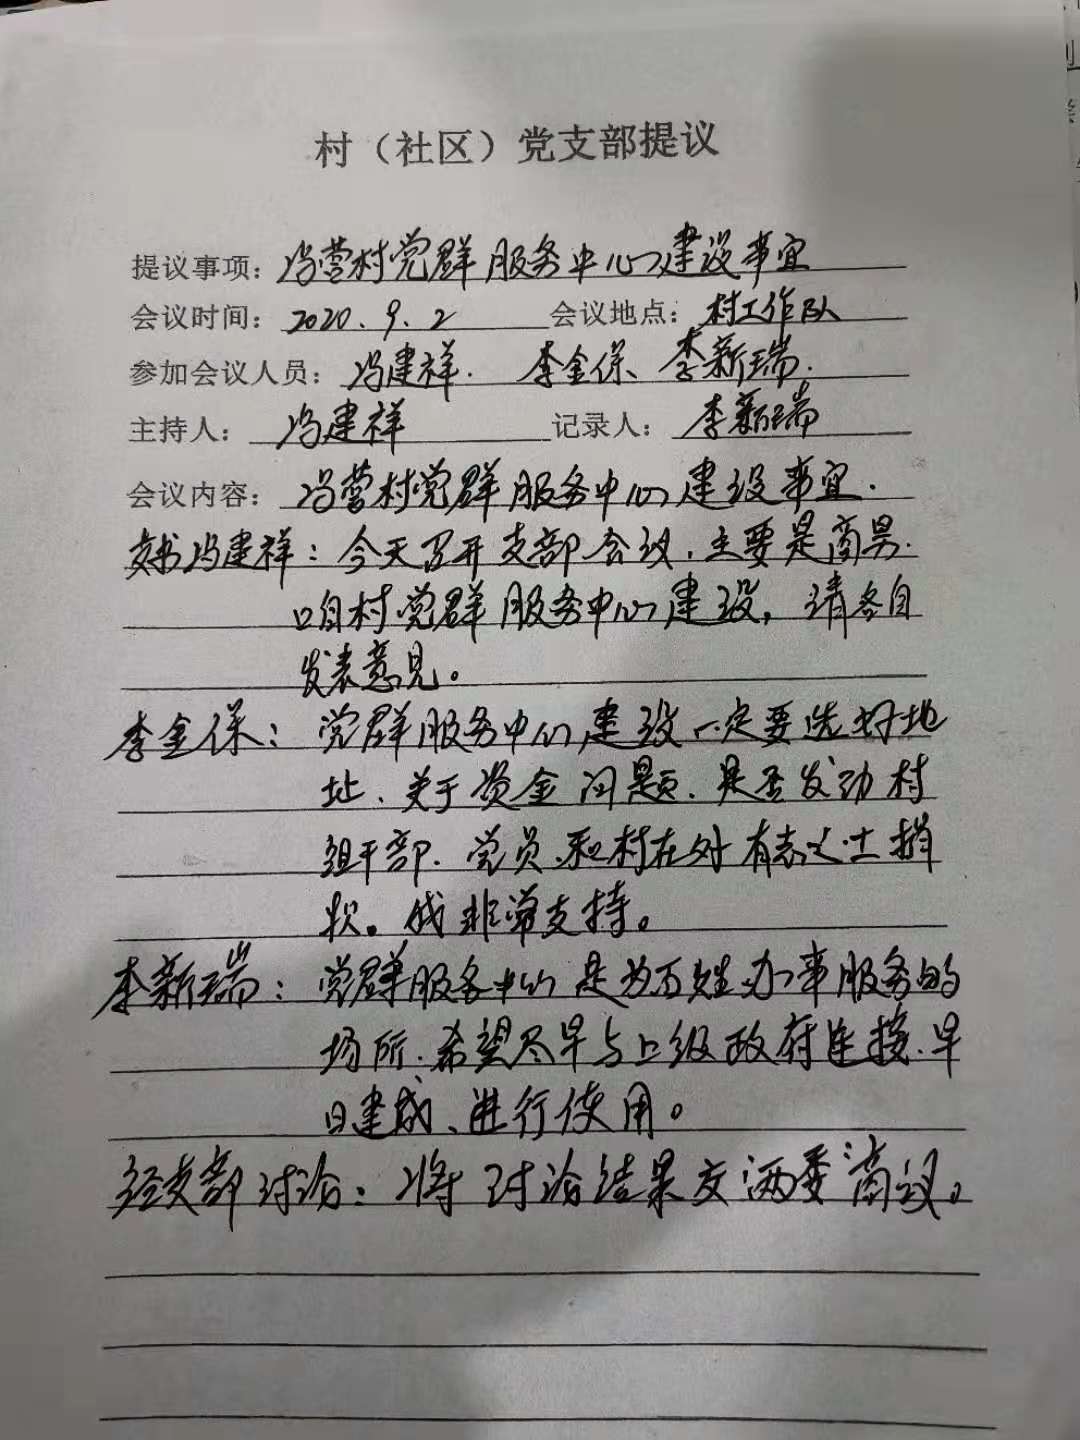 村（社区）党支部提议
提议事项：冯营村党群服务中心建设事宜
会议时间：2020.9.2 会议地点：村工作队
参加会议人员：冯建祥. 李金保、李新瑞.
主持人：冯建祥 记录人：李新瑞
会议内容：冯营村党群服务中心建设事宜.
支书冯建祥：今天召开支部会议，主要是商男.
咱村党群服务中心建设，请各自
发表意见。
李金保：党群服务中心建设一定要选好地
址、关于资金问题、是否发动村
组干部、党员、和村在外有志之士捐
款。我非常支持。
李新瑞：党群服务中心是为百姓办事服务的
场所.希望尽早与上级政府连接、早
日建成、进行使用。
经支部讨论：将讨论结果交两委商议。